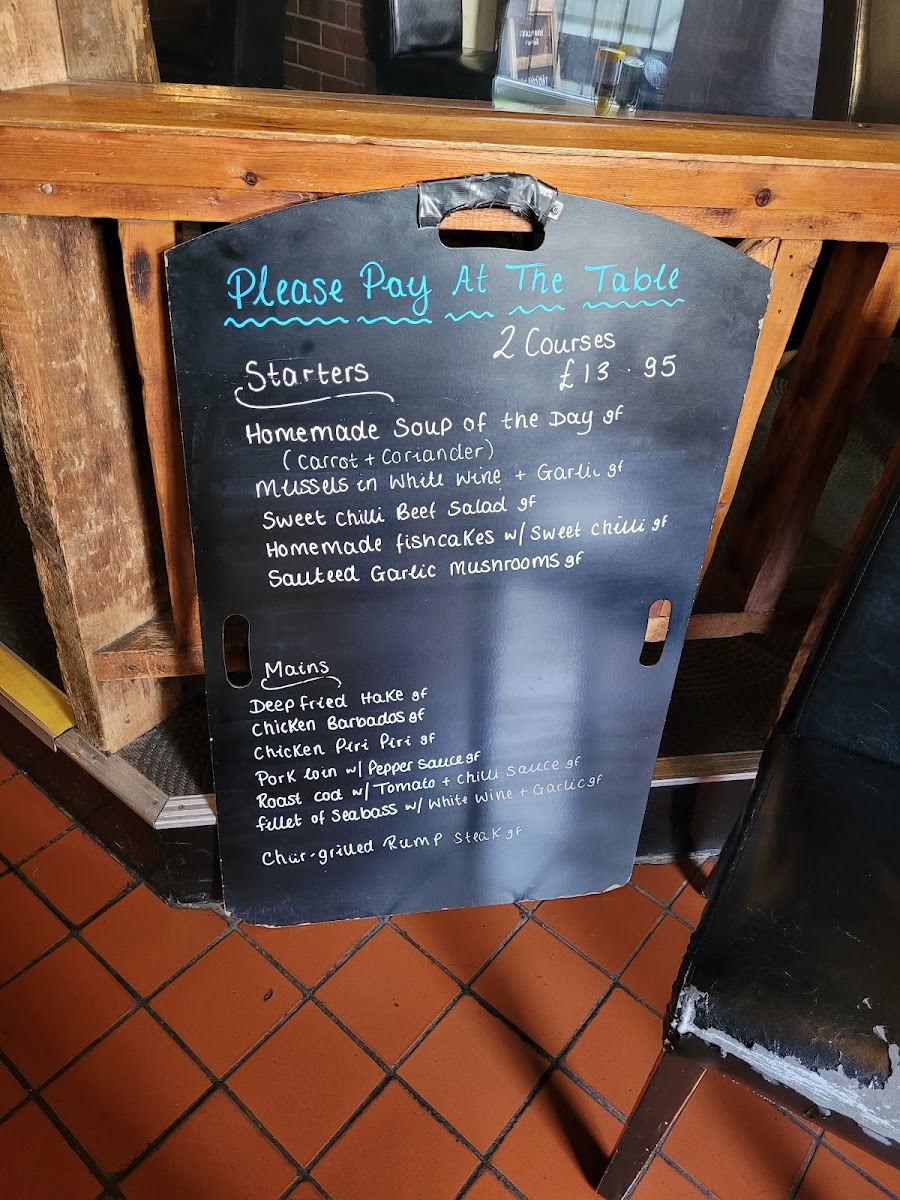 Please Pay At The Table
2 Courses
£13.95
Starters
Homemade Soup of the Day gf
(Carrot + Coriander)
Mussels in White Wine + Garlic gf
Sweet Chilli Beef Salad gf
Homemade fishcakes w/ Sweet Chilli gf
Sauteed Garlic Mushrooms gf
Mains
Deep fried Hake gf
Chicken Barbados gf
Chicken Piri Piri gf
Pork loin w/ Pepper sauce gf
Roast cod w/ Tomato + Chilli Sauce gf
fillet of Seabass w/ White Wine + Garlic gf
Char-grilled Rump Steak gf